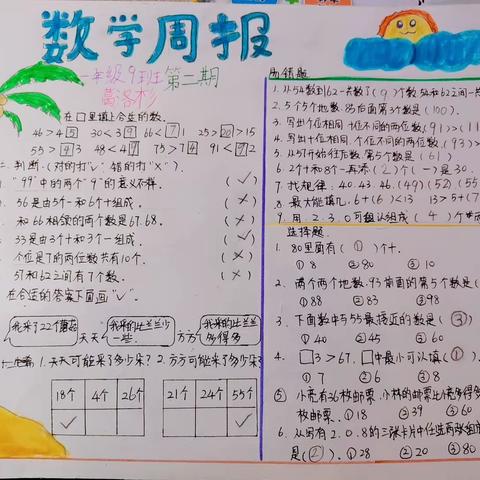 数学周报
一年级9班
第二期
高洛杉
一. 在□里填上合适的数.
46>4[5] 30<3[9] 66<[7]1 25>[20]>15
55>[4]3 48<4[9] 75>7[4] 91<[9]2
二. 判断. (对的打"√" 错的打"×").
"99"中的两个"9"的意义不一样. (√)
56是由5个一和6个十组成. (×)
和66相邻的两个数是67.68. (×)
33是由3个十和3个一组成. (√)
个位是7的两位数共有10个. (×)
57和62之间有7个数. (×)
在合适的答案下面画"√".
我采了22个蘑菇
天天
我采的比兰兰少一些.
方方
我采的比兰兰多得多
1. 天天可能采了多少朵? 2. 方方可能采了多少朵?
18个 4个 26个
√
21个 24个 55个
√
1. 从54数到62一共数了(9)个数. 54和62之间一共
2. 5个5个地数. 85后面第3个数是(100).
3. 写出个位相同 十位不同的两位数(91)>(11
4. 写出十位相同. 个位不同的两位数(93)>
5. 从57开始往后数. 第5个数是(61)
6. 2个十和8个一再添(2)个(一)是30.
7. 找规律: 40. 43. 46. (49)(52)(55
8. 最大能填几. 6+(6)<13 13>5+(7
9. 用2.3.0可组成(4)个
选择题
1. 80里面有(①)个十.
①8 ②80 ③10
2. 两个两个地数. 93前面的第5个数是(
①88 ②83 ③98
3. 下面数中与55最接近的数是(③)
①40 ②45 ③60
4. □3>67. □中最小可以填(①).
①7 ②6 ③8
⑤ 小亮有36枚邮票. 小林的邮票比小亮多得多
枚邮票. ①18 ②39 ③60
6. 从写有2.0.8的三张卡片中任选两张组
是(②). ①28 ②20 ③80